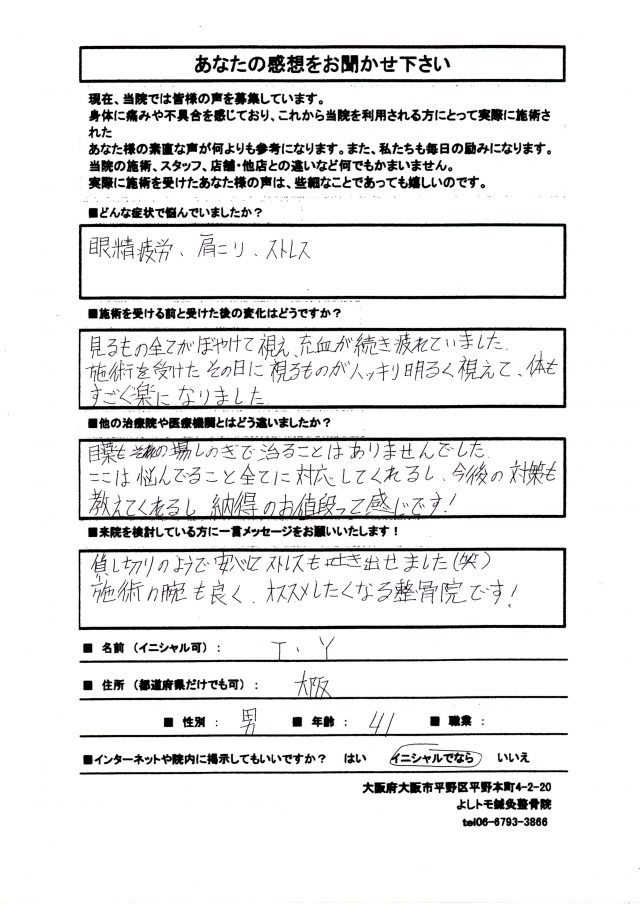 あなたの感想をお聞かせ下さい
現在、当院では皆様の声を募集しています。
身体に痛みや不具合を感じており、これから当院を利用される方にとって実際に施術さ
れた
あなた様の素直な声が何よりも参考になります。また、私たちも毎日の励みになります。
当院の施術、スタッフ、店舗・他店との違いなど何でもかまいません。
実際に施術を受けたあなた様の声は、些細なことであっても嬉しいのです。
■どんな症状で悩んでいましたか？
眼精疲労、肩こり、ストレス
■施術を受ける前と受けた後の変化はどうですか？
見るもの全てがぼやけて視え、充血が続き疲れていました。
施術を受けたその日に視るものがハッキリ明るく視えて、体も
すごく楽になりました
■他の治療院や医療機関とはどう違いましたか？
目薬もその場しのぎで治ることはありませんでした
ここは悩んでること全てに対応してくれるし、今後の対策も
教えてくれるし 納得のお値段って感じです！
■来院を検討している方に一言メッセージをお願いいたします！
貸し切りのようで安心してストレスも吐き出せました（笑）
施術の腕も良く、オススメしたくなる整骨院です！
■ 名前（イニシャル可）： T・Y
■ 住所（都道府県だけでも可）： 大阪
■ 性別： 男 ■ 年齢： 41 ■ 職業：
■インターネットや院内に掲示してもいいですか？ はい イニシャルでなら いいえ
大阪府大阪市平野区平野本町4-2-20
よしトモ鍼灸整骨院
tel06-6793-3866